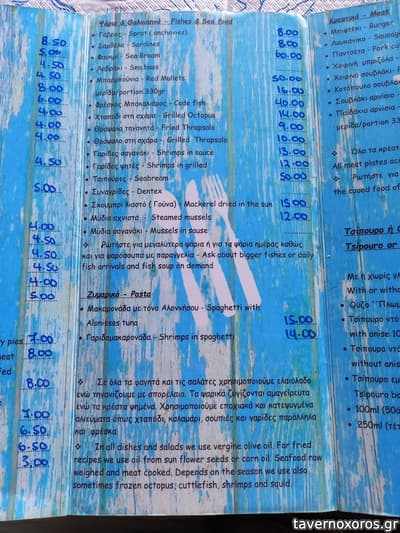 Ψάρια & Θαλασσινά - Fishes & Sea food
Γαύρος - Sprat ( anchovies) 8.00
Σαρδέλα - Sardines 8.00
- Sea Bream 60.00
Λαβράκι - Sea bass
Μπαρμπούνια - Red Mullets 50.00
μερίδα/portion 330gr 16.00
Φρέσκος Μπακαλιάρος - Code fish 40.00
Χταπόδι στη σχάρα - Grilled Octopus 14.00
Θράψαλα τηγανητά - Fried Thrapsala 9.00
Θράψαλο στη σχάρα - Grilled Thrapsalo 10.00
Γαρίδες σαγανάκι - Shrimps in sauce 13.00
Γαρίδες ψητές - Shrimps in grilled 12.00
Τσιπούρες - Seabream 50.00
Συναγρίδες - Dentex
Σκουμπρί λιαστό ( Γούνα) - Mackerel dried in the sun 15.00
Μύδια αχνιστά - Steamed mussels 12.00
Μύδια σαγανάκι - Mussels in sause
Ρωτήστε για μεγαλύτερα ψάρια ή για τα ψάρια ημέρας καθώς
και για ψαρόσουπα με παραγγελία - Ask about bigger fishes or daily
fish arrivals and fish soup on demand
Ζυμαρικά - Pasta
Μακαρονάδα με τόνο Αλοννήσου - Spaghetti with
Alonissos tuna 15.00
Γαριδομακαρονάδα - Shrimps in spaghetti 14.00
Σε όλα τα φαγητά και τις σαλάτες χρησιμοποιούμε ελαιόλαδο
ενώ τηγανίζουμε με σπορέλαιο. Τα ψαρικά ζυγίζονται αμαγείρευτα
ενώ τα κρέατα ψημένα. Χρησιμοποιούμε εποχιακά και κατεψυγμένα
αλιεύματα όπως χταπόδι, καλαμάρι, σουπιές και γαρίδες παράλληλα
και φρέσκα
In all dishes and salads we use vergine olive oil. For fried
recipes we use oil from sun flower seeds or corn oil. Seafood raw
weighed and meat cooked. Depends on the season we use also
sometimes frozen octopus; cuttlefish, shrimps and squid.
8.50
5.00
4.50
4.50
8.00
6.00
4.00
4.00
4.00
4.50
5.00
4.00
4.50
4.50
4.50
4.00
5.00
pies 7.00
meat 8.00
8.00
7.00
6.50
6.50
3.00
Κρεατικά - Meat
Μπιφτέκι - Burger
Λουκάνικο - Sausage
Πανσέτα - Pork
Χοιρινή μπριζόλα
Χοιρινό σουβλάκι
Κοτόπουλο σουβλάκι
Σουβλάκι αρνίσιο
Παιδάκια αρνίσια
μερίδα/portion 33
Όλα τα κρέα
All meat plates ac
Ρωτήστε για τα
the cooed food of
Τσίπουρο ή Ο
Tsipouro or
Με ή χωρίς γλ
With or witho
Ούζο "Πλωμ
Τσίπουρο ντό
with anise 10
Τσίπουρο ντό
without anise
Τσίπουρο εμ
Tsipouro bo
100ml (50α
250ml (τέτ
tavernoxoros.gr